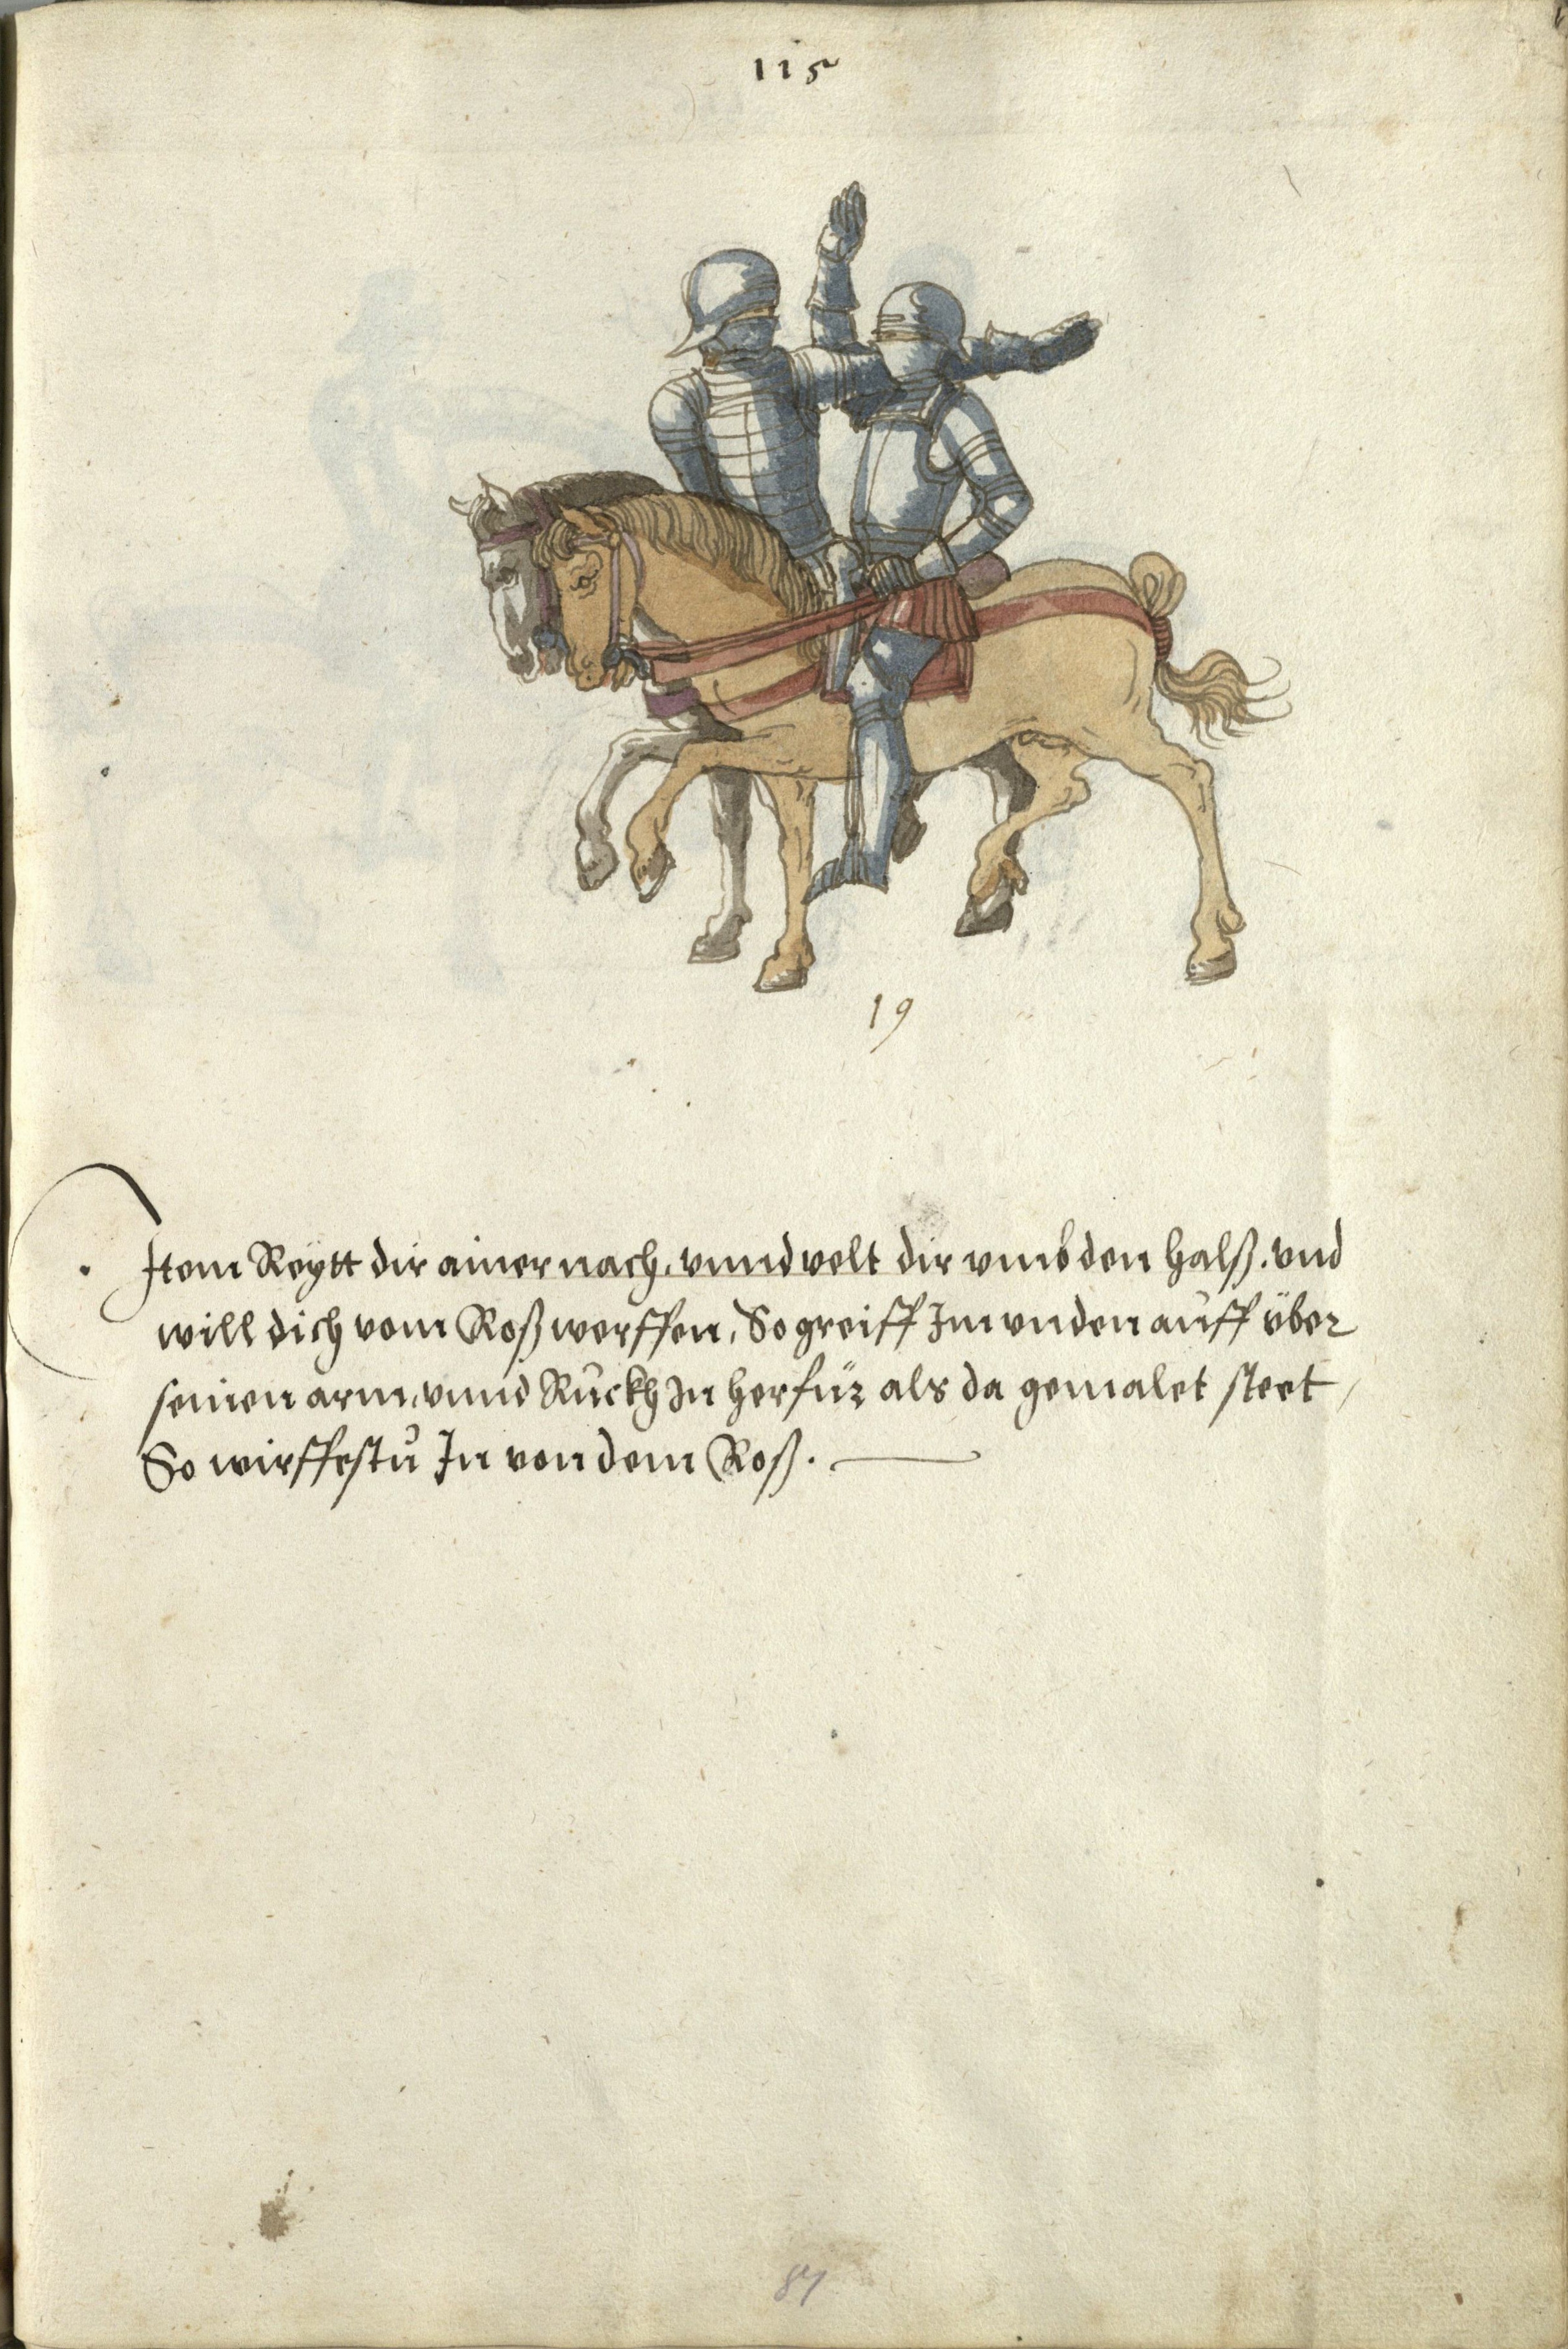 115
19
Item Reytt dir ainer nach, vnnd velt dir vmb den halß. vnd
will dich vom Roß werffen, So greiff Im vnden auff über
seinen arm, vnnd Ruckh In herfür als da gemalet steet,
So wirffestu In von dem Roß.